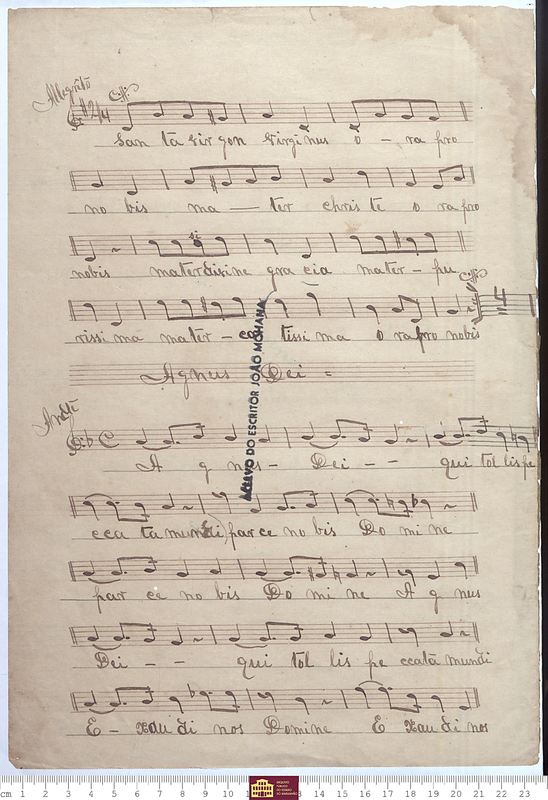 Allegrêto 2/4
San ta vir gon virginus o - ra pro
no bis ma — ter chris te o ra pro
si
nobis mater divine gra cia mater - pu
rissi ma mater - ca tissi ma o ra pro nobis
Agnus Dei =
Andte
A g nus - Dei - - qui tol lis pe
cca ta mundi par ce no bis Do mi ne
par ce no bis Do mi ne A g nus
Dei - - qui tol lis pe ccata mundi
E - xau di nos Domine E xau di nos
ACERVO DO ESCRITOR JOÃO MOHANA
cm 1 2 3 4 5 6 7 8 9 10 1 13 14 15 16 17 18 19 20 21 22 23
ARQUIVO PÚBLICO DO ESTADO DO MARANHÃO